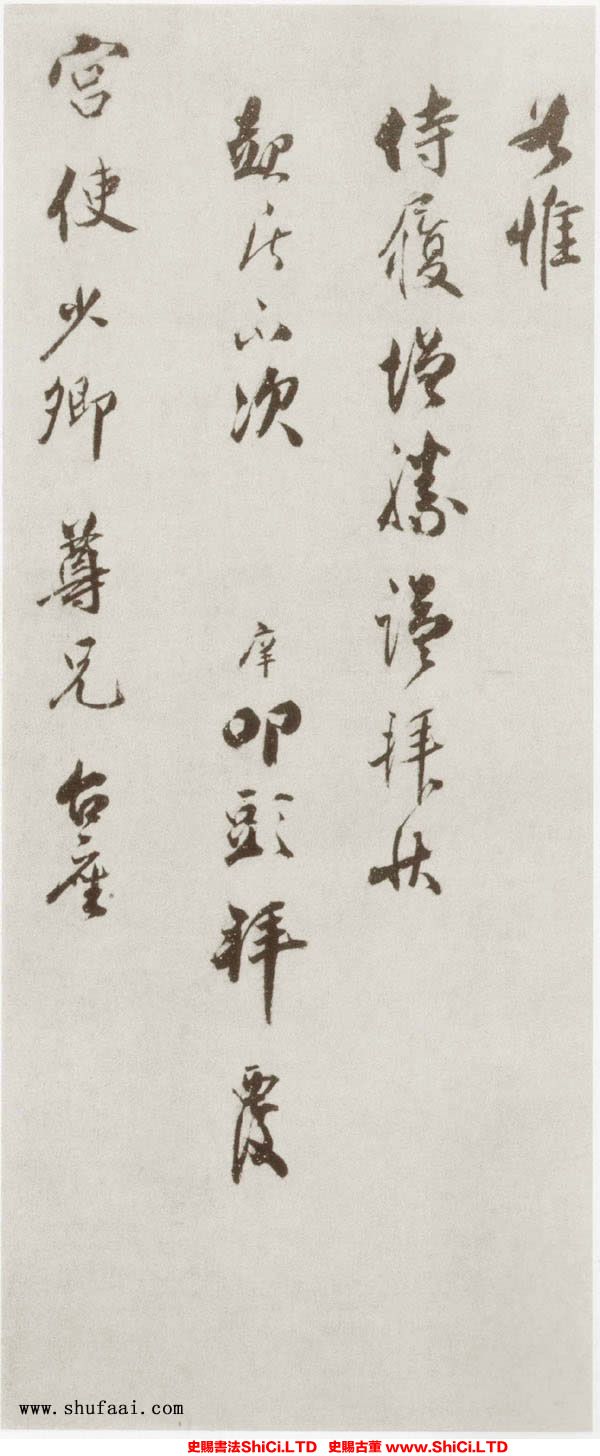 惟
侍履增勝謹拜状
起居不次 叩頭拜覆
宮使少卿 尊兄 台座
www.shufaai.com
史賜書法ShiCi.LTD 史賜古董 www.ShiCi.LTD